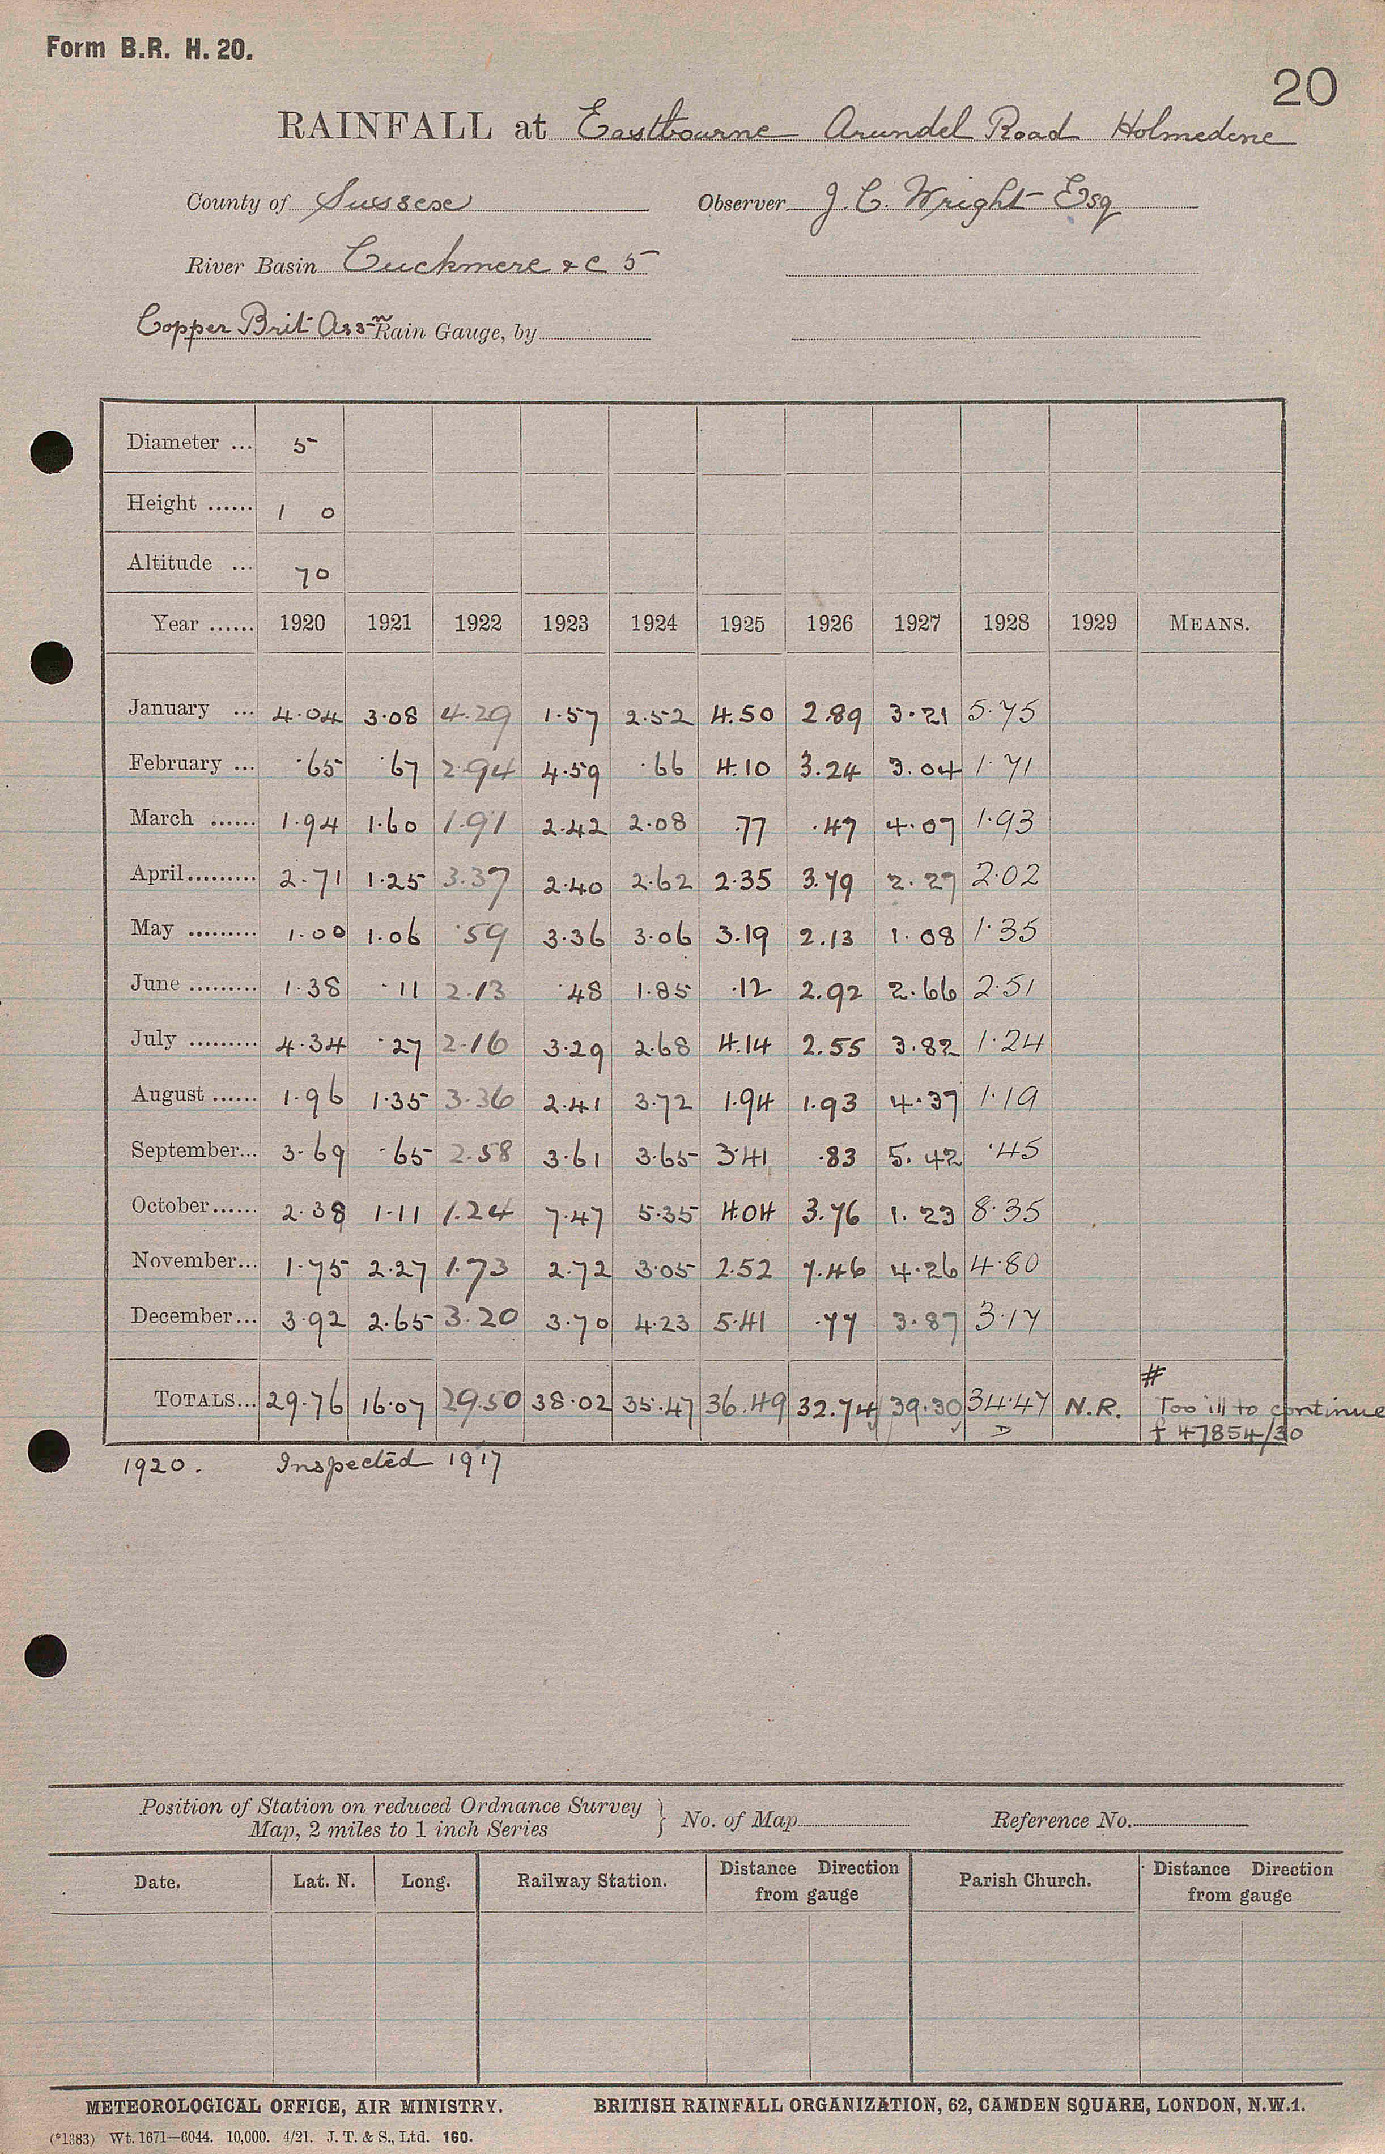 Form B.R. H. 20.
20
RAINFALL at Eastbourne Arundel Road Holmedene
County of Sussex Observer J. C. Wright Esq
River Basin Cuckmere &c 5
Copper Brit Assn Rain Gauge, by
Diameter ... 5
Height ...... 1 0
Altitude ... 70
Year ...... 1920 1921 1922 1923 1924 1925 1926 1927 1928 1929 MEANS.
January ... 4.04 3.08 4.29 1.57 2.52 4.50 2.89 3.21 5.75
February ... .65 .67 2.94 4.59 .66 4.10 3.24 3.04 1.71
March ...... 1.94 1.60 1.91 2.42 2.08 .77 .47 4.07 1.93
April......... 2.71 1.25 3.37 2.40 2.62 2.35 3.79 2.27 2.02
May ......... 1.00 1.06 .59 3.36 3.06 3.19 2.13 1.08 1.35
June ......... 1.38 .11 2.13 .48 1.85 .12 2.92 2.66 2.51
July ......... 4.34 .27 2.16 3.29 2.68 4.14 2.55 3.82 1.24
August ...... 1.96 1.35 3.36 2.41 3.72 1.94 1.93 4.37 1.19
September... 3.69 .65 2.58 3.61 3.65 3.41 .83 5.42 .45
October...... 2.38 1.11 1.24 7.47 5.35 4.04 3.76 1.23 8.35
November... 1.75 2.27 1.73 2.72 3.05 2.52 7.46 4.26 4.80
December... 3.92 2.65 3.20 3.70 4.23 5.41 .77 3.87 3.17
#
TOTALS... 29.76 16.07 29.50 38.02 35.47 36.49 32.74 39.30 34.47 N.R. Too ill to continue
D f 47854/30
1920. Inspected 1917
Position of Station on reduced Ordnance Survey
Map, 2 miles to 1 inch Series } No. of Map Reference No.
Date. Lat. N. Long. Railway Station. Distance Direction from gauge Parish Church. Distance Direction from gauge
METEOROLOGICAL OFFICE, AIR MINISTRY. BRITISH RAINFALL ORGANIZATION, 62, CAMDEN SQUARE, LONDON, N.W.1.
(*1383) Wt. 1671—6044. 10,000. 4/21. J. T. & S., Ltd. 160.